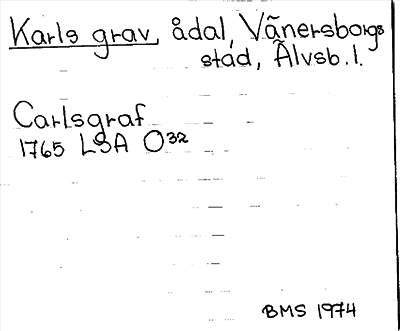 Karls grav, ådal, Vänersborgs
stad, Älvsb. l.
Carlsgraf
1765 LSA O32
BMS 1974